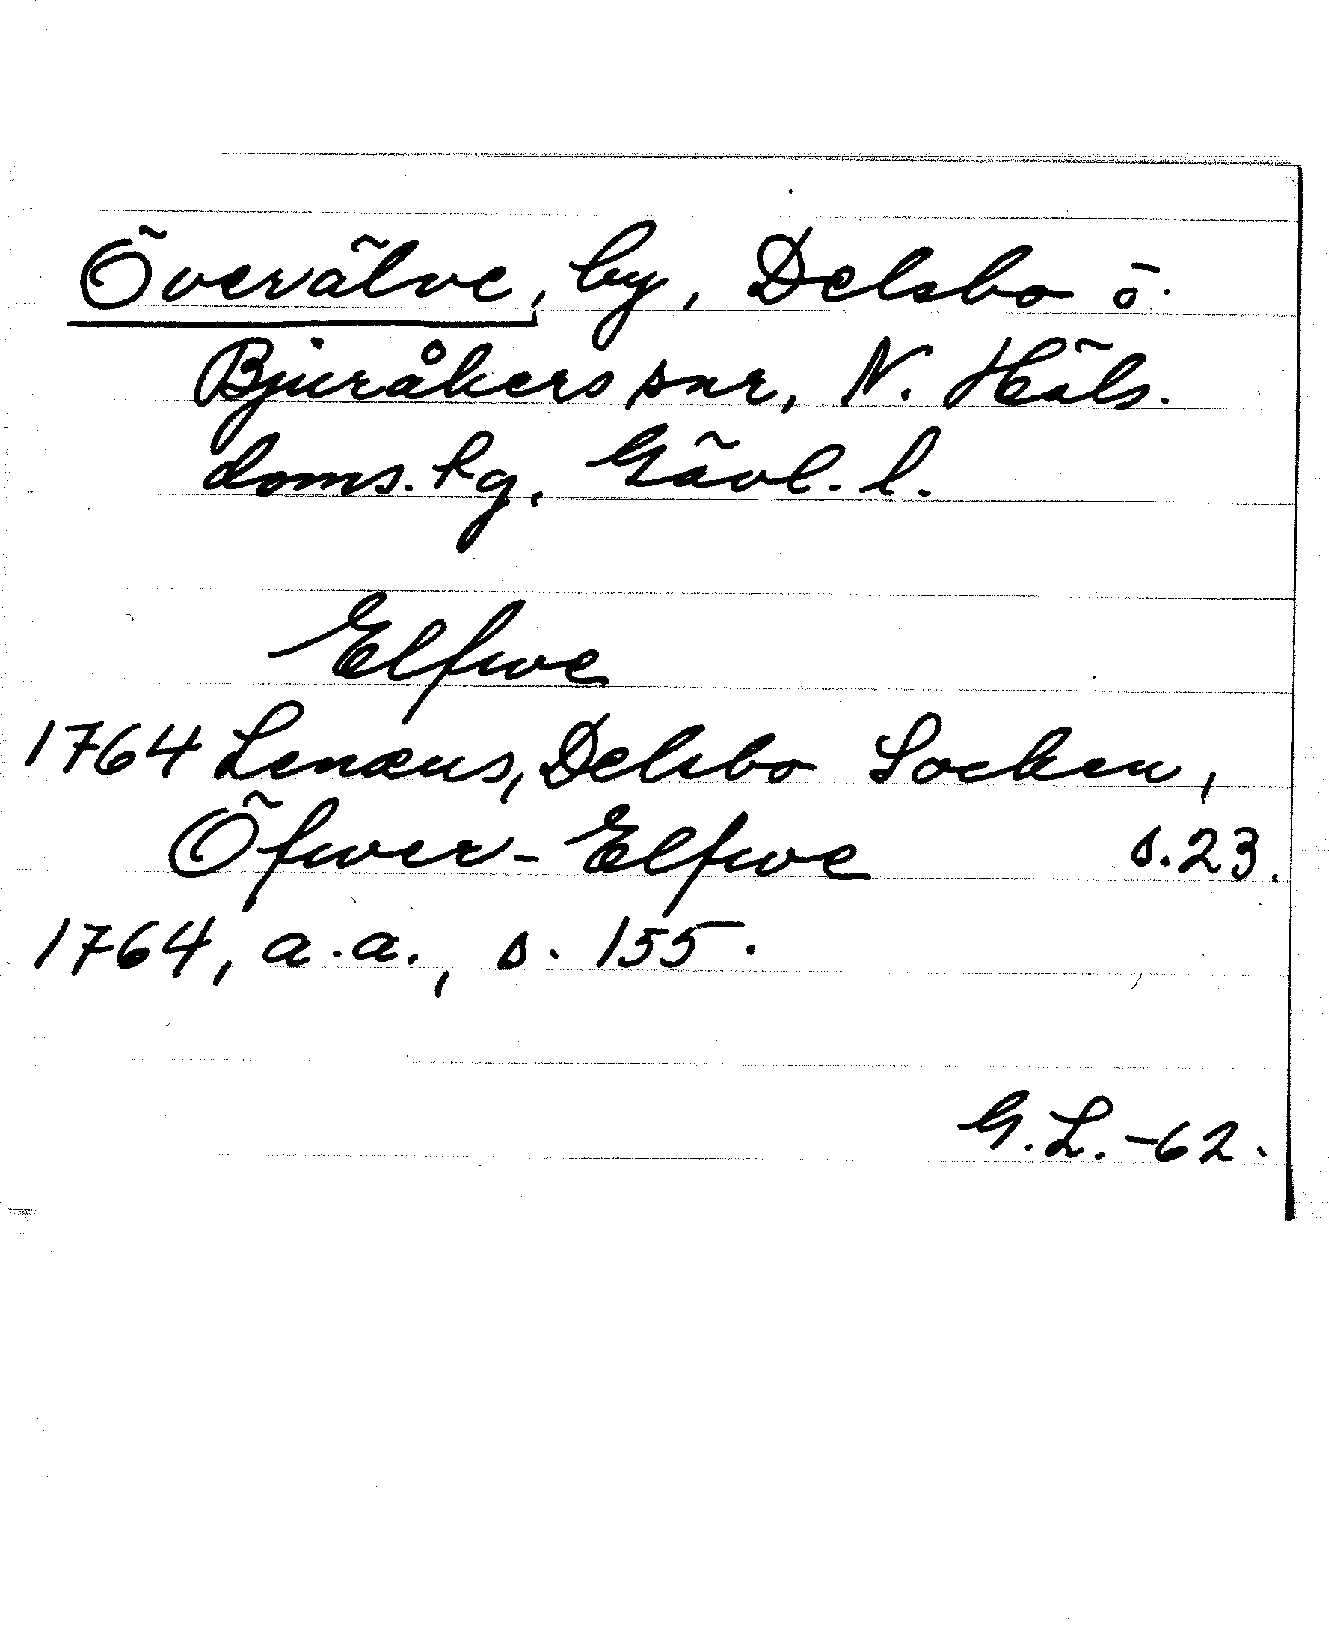 Överälve, by, Delsbo o.
Bjuråkers snr, N. Häls.
doms. hg, Gävl. l.
Elfwe
1764 Lenæus, Delsbo Socken,
Öfwer-Elfwe s.23.
1764, a.a., s. 155.
G.L.-62.